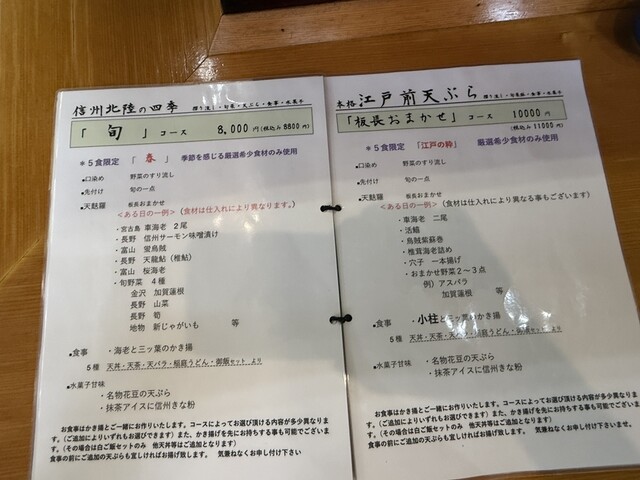 信州北陸の四季 摺り流し・旬菜・天ぷら・食事・水菓子
「 旬 」 コース 8,000円(税込み8800円)
＊５食限定 「 春 」 季節を感じる厳選希少食材のみ使用
●口染め 野菜のすり流し
●先付け 旬の一点
●天麩羅 板長おまかせ
＜ある日の一例＞（食材は仕入れにより異なります。）
・宮古島 車海老 2尾
・長野 信州サーモン味噌漬け
・富山 蛍烏賊
・長野 天龍鮎（稚鮎）
・富山 桜海老
・旬野菜 ４種
金沢 加賀蓮根
長野 山菜
長野 筍
地物 新じゃがいも 等
●食事 ・海老と三ッ葉のかき揚
５種 天丼・天茶・天バラ・稲庭うどん・御飯セット より
●水菓子甘味
・名物花豆の天ぷら
・抹茶アイスに信州きな粉
お食事はかき揚とご一緒にお作りいたします。コースによってお選び頂ける内容が多少異なります。（ご追加によりいずれもお選びできます）また、かき揚げを先にお持ちする事も可能でございます。（その場合は白ご飯セットのみ 他天丼等はご追加となります）
食事の前にご追加の天ぷらも宜しければお揚げ致します。 気兼ねなくお申し付け下さい
本格 江戸前天ぷら 摺り流し・旬菜・天ぷら・食事・水菓子
「板長おまかせ」 コース 10000円
(税込み11000円)
＊５食限定 「江戸の粋」 厳選希少食材のみ使用
●口染め 野菜のすり流し
●先付け 旬の一点
●天麩羅 板長おまかせ
＜ある日の一例＞（食材は仕入れにより異なる事もございます）
・車海老 二尾
・活鱚
・烏賊紫蘇巻
・椎茸海老詰め
・穴子 一本揚げ
・おまかせ野菜２～３点
例）アスパラ
加賀蓮根 等
●食事 ・小柱と三ッ葉のかき揚
５種 天丼・天茶・天バラ・稲庭うどん・御飯セット より
●水菓子甘味
・名物花豆の天ぷら
・抹茶アイスに信州きな粉
お食事はかき揚とご一緒にお作りいたします。コースによってお選び頂ける内容が多少異なります。（ご追加によりいずれもお選びできます）また、かき揚げを先にお持ちする事も可能でございます。（その場合は白ご飯セットのみ 他天丼等はご追加となります）
食事の前にご追加の天ぷらも宜しければお揚げ致します。 気兼ねなくお申し付け下さい